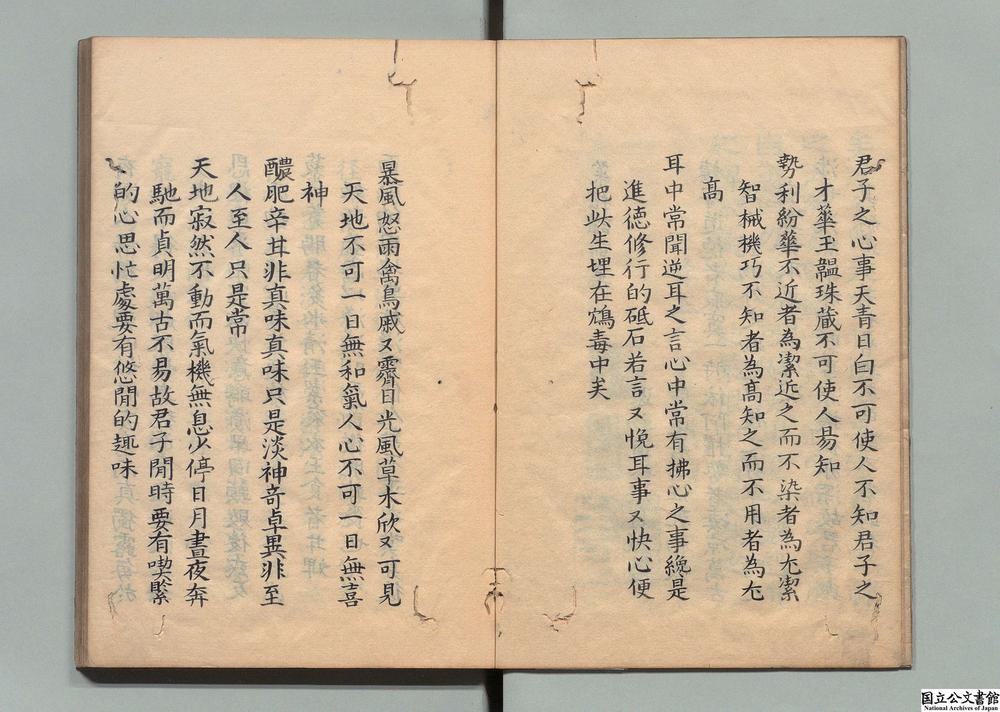 君子之心事天青日白不可使人不知君子之
才華玉韞珠蔵不可使人昜知
勢利紛華不近者為潔近之而不染者為尤潔
智械機巧不知者為髙知之而不用者為尤
髙
耳中常聞逆耳之言心中常有拂心之事纔是
進德修行的砥石若言〻悅耳事〻快心便
把此生埋在鴆毒中矣
暴風怒雨禽鳥戚〻霽日光風草木欣〻可見
天地不可一日無和氣人心不可一日無喜
神
醲肥辛甘非真味真味只是淡神奇卓異非至
人至人只是常
天地寂然不動而氣機無息少停日月晝夜奔
馳而貞明萬古不易故君子閒時要有喫緊
的心思忙處要有悠閒的趣味
国立公文書館
National Archives of Japan